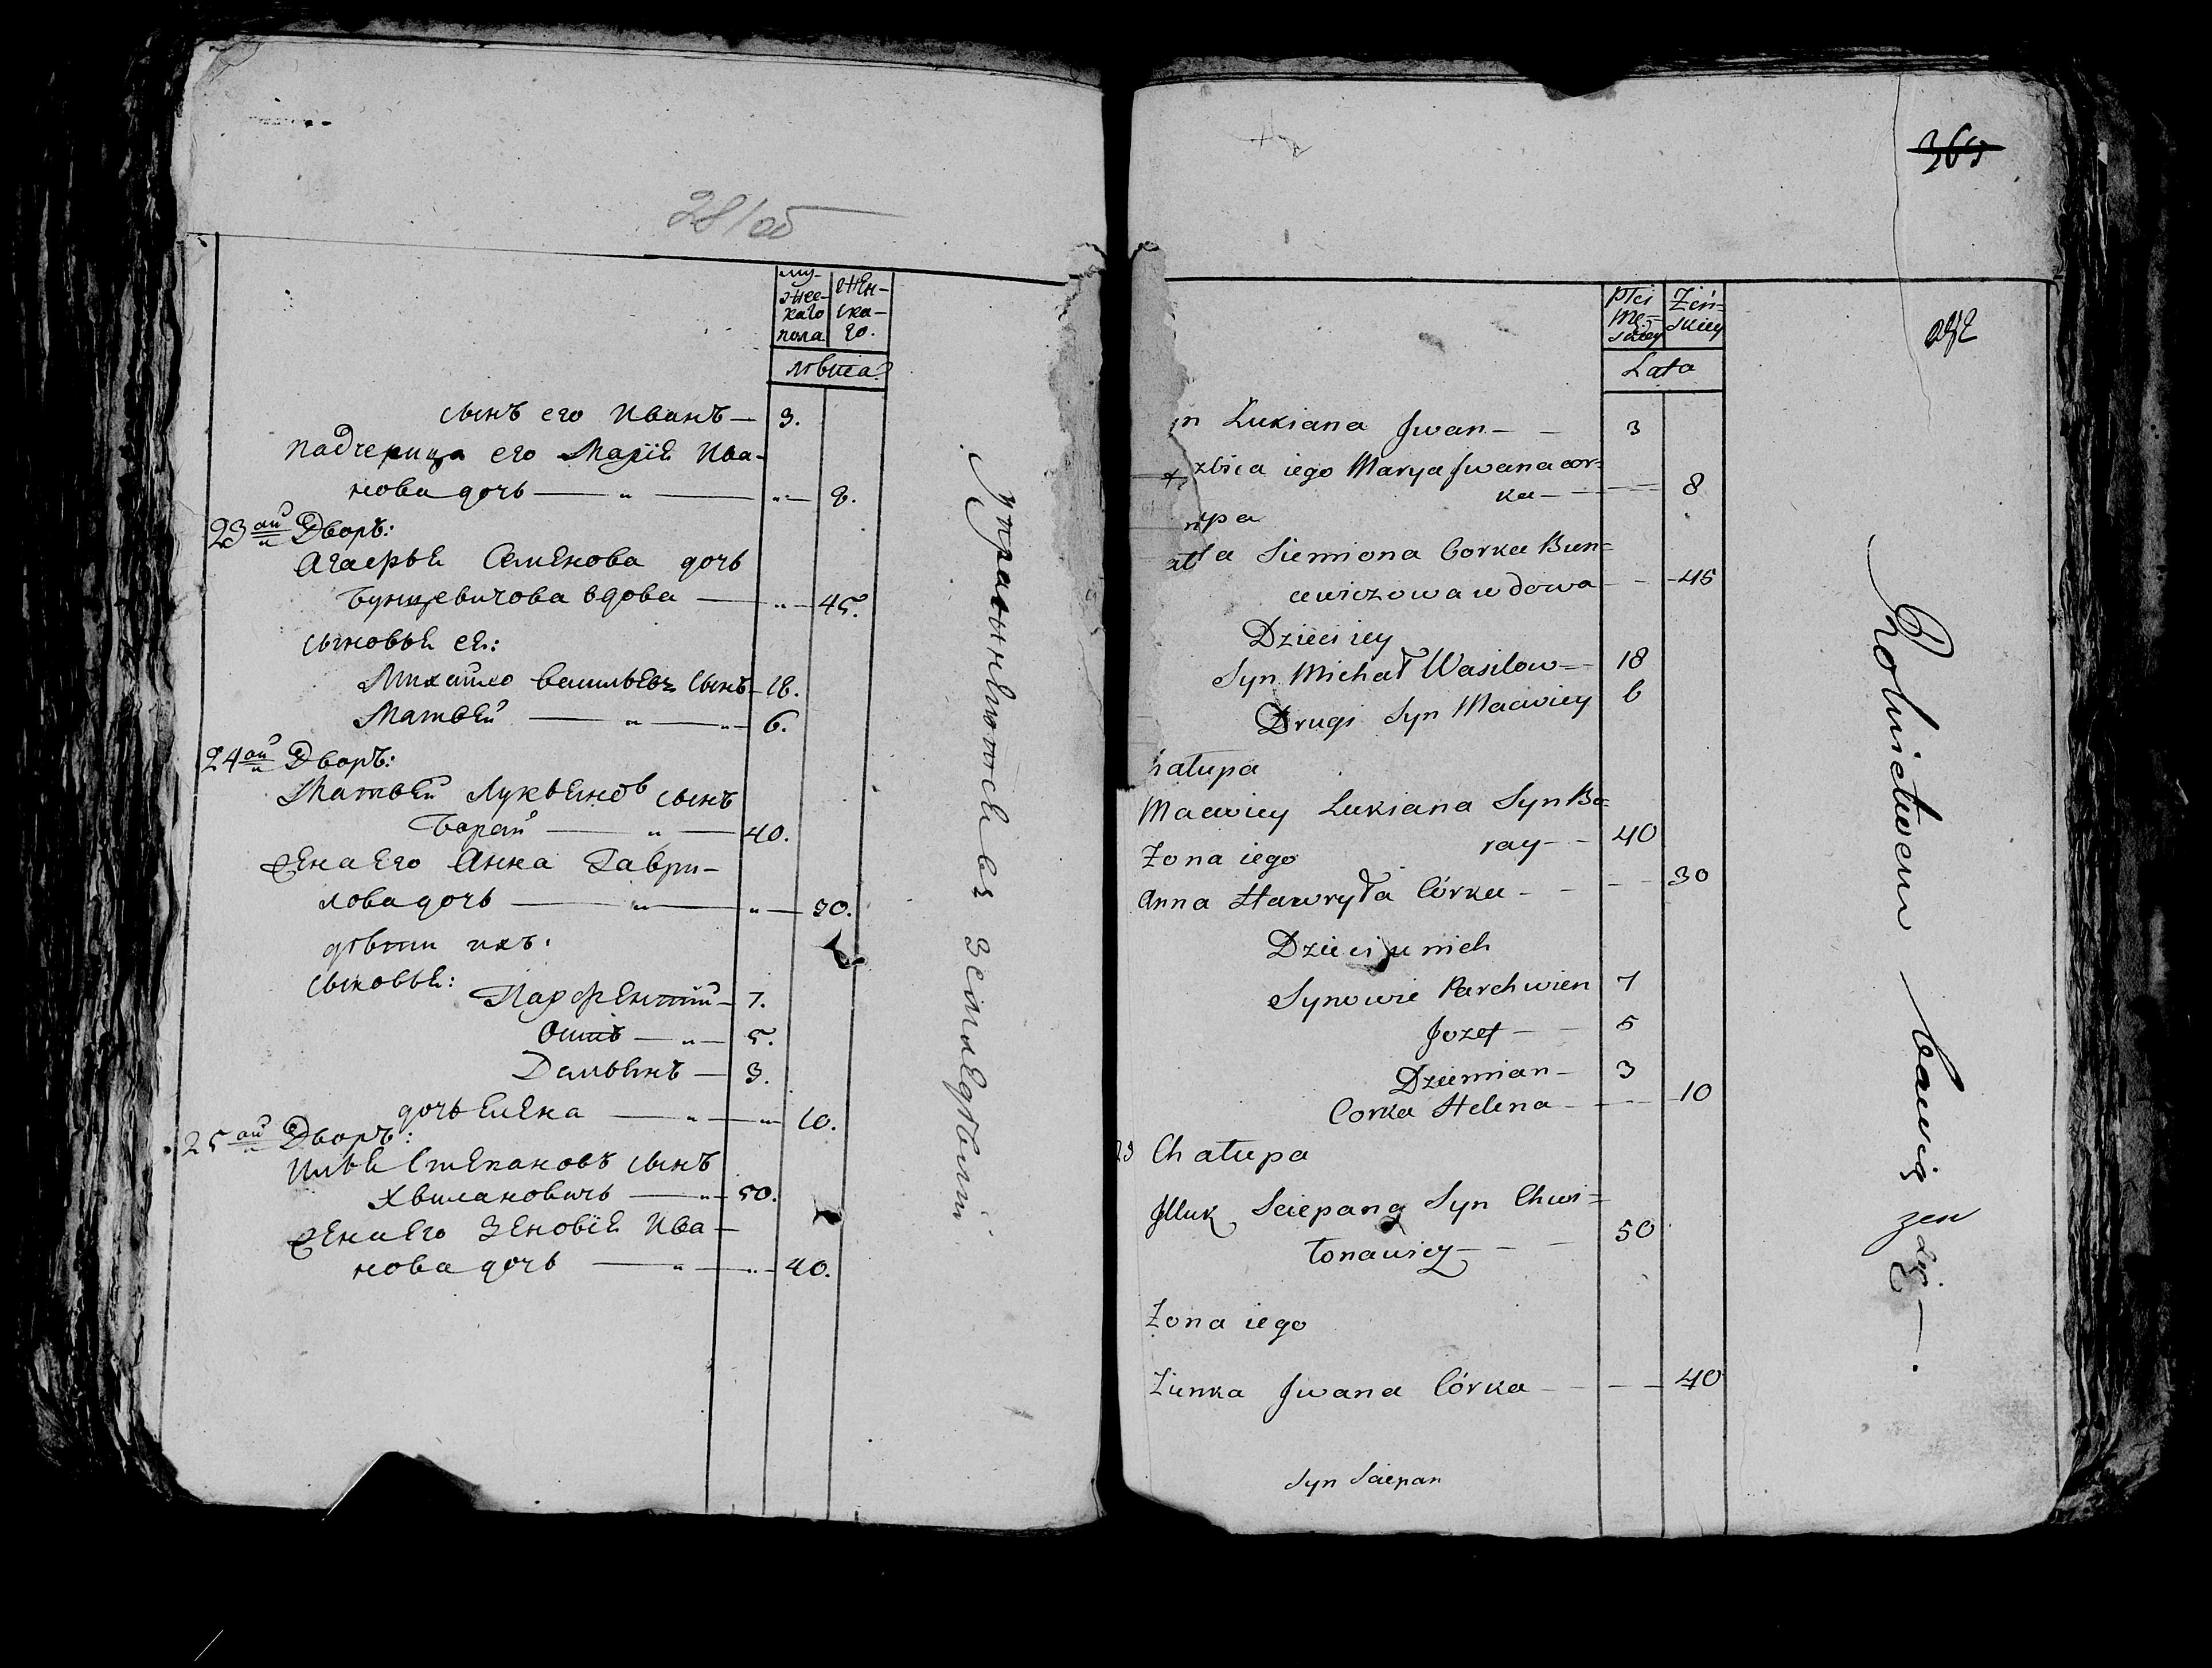 28/об
му-
жес-
каго
пола
жен-
ска-
го.
лѣта
сынъ его Иванъ — 3.
падчерица его Марїя Ива-
нова дочь — „ — „ — 8.
23ай Дворъ:
Агафья Семенова дочь
Бунцевичова вдова — „ — 45.
сыновья ея:
Михайло Васильевъ сынъ — 18.
Матвей — „ — „ — 6.
24ай Дворъ:
Матвей Лукьяновъ сынъ
Борай — „ — 40.
жена Его Анна Гаври-
лова дочь — „ — „ — 30.
дѣти ихъ:
сыновья:
Парфентїй — 7.
Осипъ — „ — 5.
Демьянъ — 3.
дочь Елена — „ — „ — 10.
25ай Дворъ:
Илья Степановъ сынъ
Хвилановичь — „ — 50.
жена Его Зеновїя Ива-
нова дочь — „ — „ — 40.
Упражняются въ земледѣлїи
365
Płci
Mę=
skiey
Żeń=
skiey
Lata
yn Lukiana Jwan — — 3
zbica iego Marya Jwana cor=
ka — — — 8
upa
Siemiona Corka Bun=
cewiczowa wdowa — — 45
Dzieci iey
Syn Michał Wasilow — 18
Drugi Syn Maciwiey 6
hałupa
Maciwiey Lukiana Syn Bo=
ray — — 40
Żona iego
Anna Hawryła Córka — — — 30
Dzieci u nich
Synowie Parchwien 7
Jozef — — 5
Dziemian — 3
Corka Helena — — — 10
23 Chałupa
Jlluk Sciepana Syn Chwi=
łonawicz — — — 50
Żona iego
Zienka Jwana Córka — — — 40
Syn Sciepan
Rolnictwem bawią
się —.